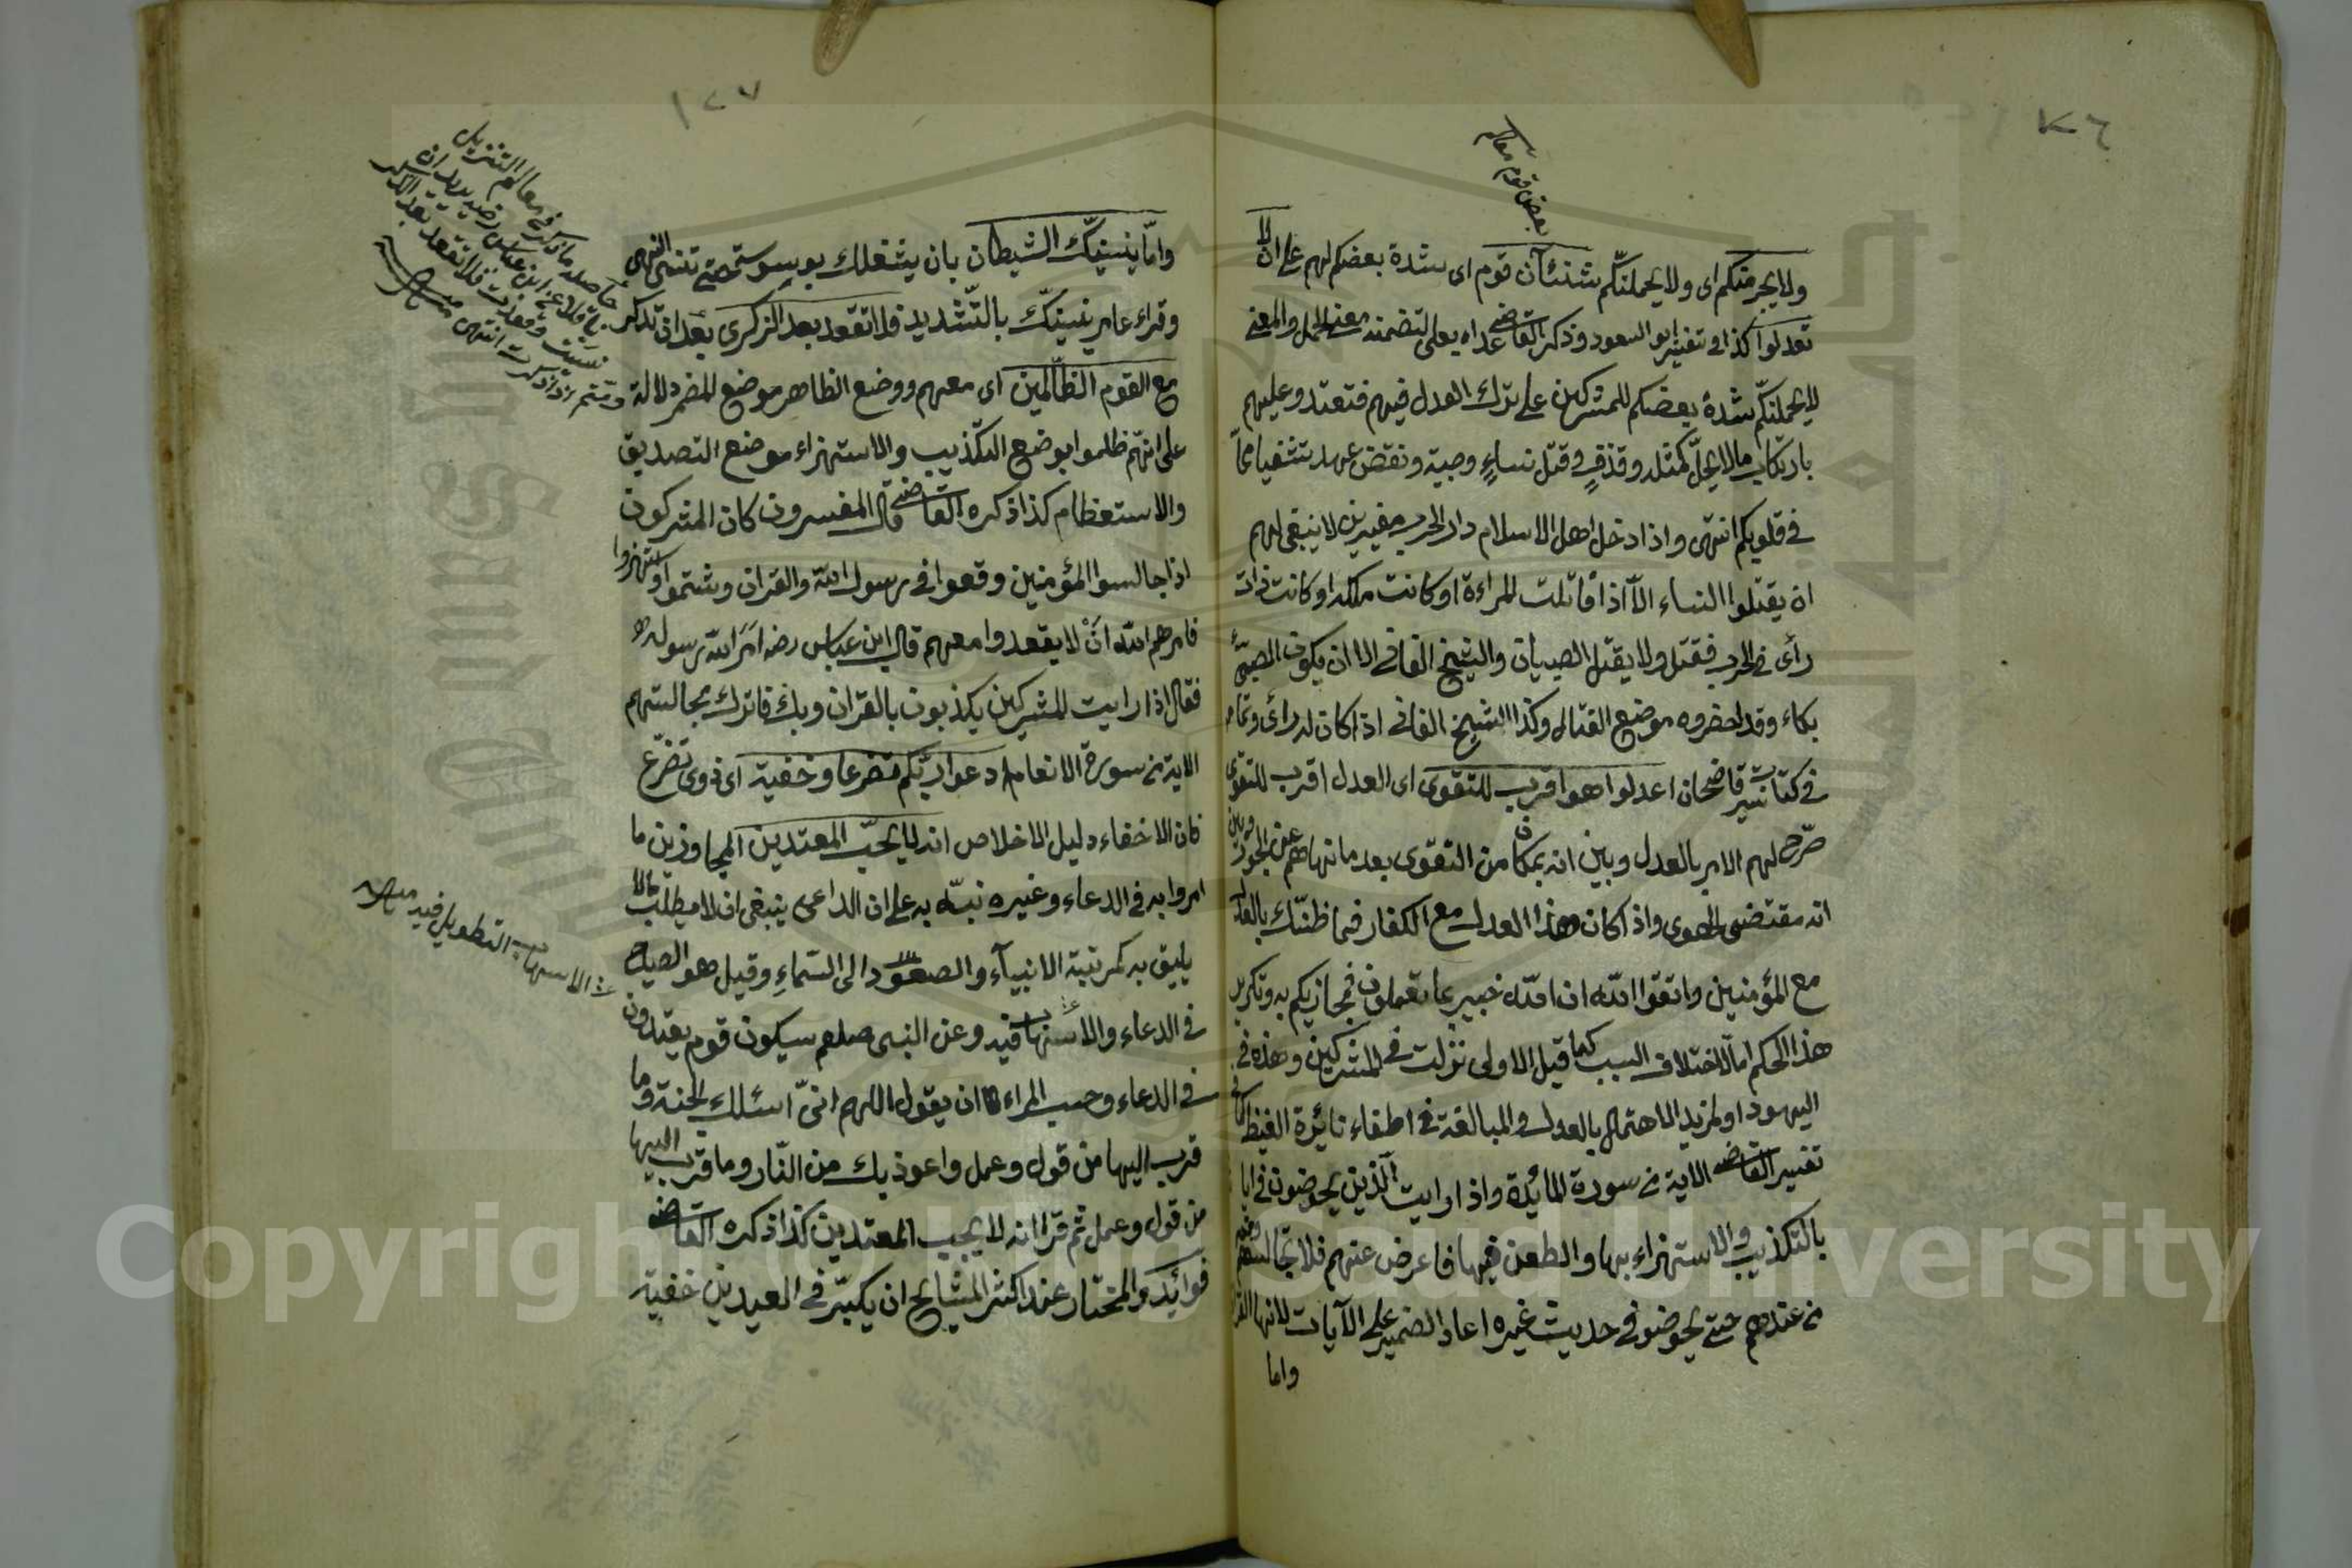 بعض قوم
ولا يجرمنكم اى ولا يحملنكم شنئان قوم اى شدة بعضكم لهم على ان لا
تعدلوا كذا فى تفسير ابو السعود وذكر القاضى عداه بعلى لتضمنه معنى الحمل والمعنى
لا يحملنكم شدة بعضكم للمشركين على ترك العدل فيهم فتعتدوا عليهم
بارتكاب ما لا يحل كمثله وقذف وقتل نساء وصبية ونقض عهد تشفيا مما
فى قلوبكم انتهى واذا دخل اهل الاسلام دار الحرب مغيرين لا ينبغى لهم
ان يقتلوا النساء الا اذا قاتلت المراءة او كانت ملكه او كانت ذات
رأى فى الحرب فقتل ولا يقتل الصبيان والشيخ الفانى الا ان يكون الصبى
بكاء وقد احضروه موضع القتال وكذا الشيخ الفانى اذا كان له رأى
فى كتاب سير قاضيخان اعدلوا هو اقرب للتقوى اى العدل اقرب للتقوى
صرح لهم الامر بالعدل وبين انه بمكان من التقوى بعد ما نهاهم عن الجور وبين
انه مقتضى الهوى واذا كان هذا العدل مع الكفار فما ظنك بالعدل
مع المؤمنين واتقوا الله ان الله خبير بما تعملون فيجازيكم به وتكرير
هذا الحكم اما لاختلاف السبب كما قيل الاولى نزلت فى المشركين وهذه فى
اليهود او لمزيد الاهتمام بالعدل والمبالغة فى اطفاء نائرة الغيظ
تفسير القاضى الاية من سورة المائدة واذا رايت الذين يخوضون فى ايا
بالتكذيب والاستهزاء بها والطعن فيها فاعرض عنهم فلا تجالسهم
من عندهم حتى يخوضوا فى حديث غيره اعاد الضمير على الآيات لانها القر
واما
١٢٧
واما ينسينك الشيطان بان يشغلك بوسوسته حتى تنسى النهى
وقراء عامر ينسينك بالتشديد فلا تقعد بعد الذكرى بعد ان تذكر
مع القوم الظالمين اى معهم ووضع الظاهر موضع المضمر دلالة
على انهم ظلموا بوضع التكذيب والاستهزاء موضع التصديق
والاستعظام كذا ذكره القاضى قال المفسرون كان المشركون
اذا جالسوا المؤمنين وقعوا فى رسول الله والقران وشتموا واستهزوا
فامرهم الله ان لا يقعدوا معهم قال ابن عباس رضه امر الله رسوله
فقال اذا رايت المشركين يكذبون بالقران وبك فاترك مجالستهم
الاية من سورة الانعام ادعوا ربكم تضرعا وخفية اى ذوى تضرع
فان الاخفاء دليل الاخلاص انه لا يحب المعتدين المجاوزين ما
امروا به فى الدعاء وغيره نبه به على ان الداعى ينبغى ان لا يطلب ما لا
يليق به كمرتبة الانبيآء والصعود الى السماء وقيل هو الصياح
فى الدعاء والاسهاب فيه وعن النبى صلعم سيكون قوم يعتدون
فى الدعاء وحسب المراء ان يقول اللهم انى اسئلك الجنة وما
قرب اليها من قول وعمل واعوذ بك من النار وما قرب اليها
من قول وعمل ثم قرا انه لا يحب المعتدين كذا ذكره القاضى
فوائد والمختار عند اكثر المشايخ ان يكبر فى العيدين خفية
حاصله ما ذكر فى معالم التنزيل
الاسهاب التطويل فيه
Copyright © King Saud University